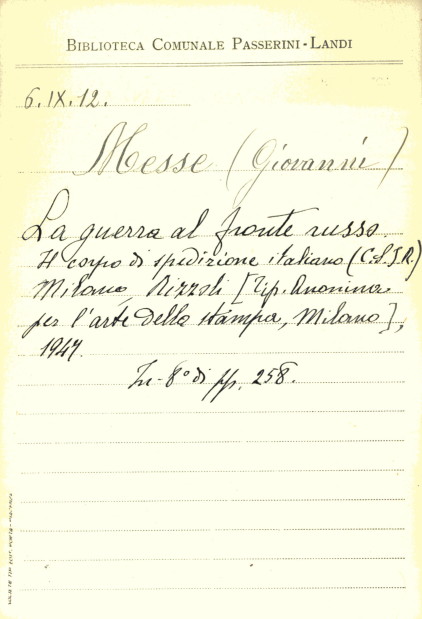 BIBLIOTECA COMUNALE PASSERINI-LANDI
6.IX.12.
Messe (Giovanni)
La guerra al fronte russo.
Il corpo di spedizione italiano (C.S.I.R.)
Milano, Rizzoli [Tip. Anonima
per l'arte della stampa, Milano],
1947.
In-8° di pp. 258.